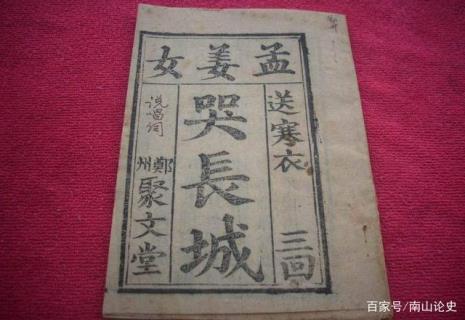 孟姜女
送寒衣 三回
哭長城
说唱词
鄭州
聚文堂
百家号/南山论史